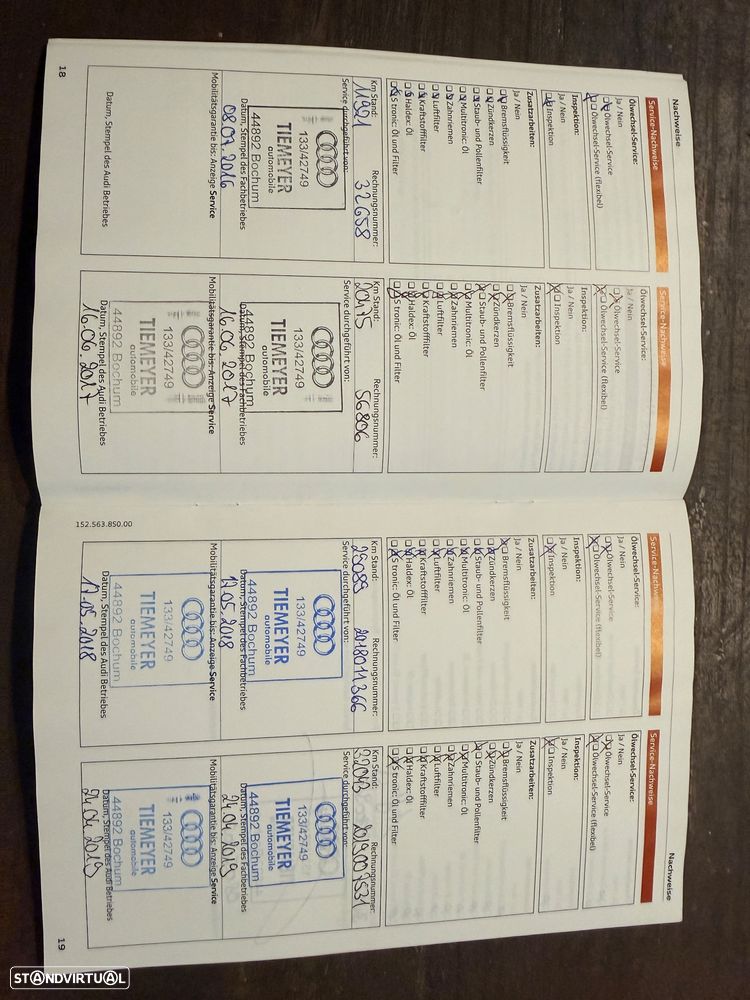 Nachweise
Service-Nachweise
Ölwechsel-Service:
Ja / Nein
Ölwechsel-Service
Ölwechsel-Service (flexibel)
Inspektion:
Ja / Nein
Inspektion
Zusatzarbeiten:
Ja / Nein
Bremsflüssigkeit
Zündkerzen
Staub- und Pollenfilter
Multitronic: Öl
Zahnriemen
Luftfilter
Kraftstofffilter
Haldex: Öl
S tronic: Öl und Filter
Km Stand: Rechnungsnummer:
32658
Service durchgeführt von:
133/42749
TIEMEYER
automobile
44892 Bochum
Datum, Stempel des Fachbetriebes
08.07.2016
Mobilitätsgarantie bis: Anzeige Service
Datum, Stempel des Audi Betriebes
18
Service-Nachweise
Ölwechsel-Service:
Ja / Nein
Ölwechsel-Service
Ölwechsel-Service (flexibel)
Inspektion:
Ja / Nein
Inspektion
Zusatzarbeiten:
Ja / Nein
Bremsflüssigkeit
Zündkerzen
Staub- und Pollenfilter
Multitronic: Öl
Zahnriemen
Luftfilter
Kraftstofffilter
Haldex: Öl
S tronic: Öl und Filter
Km Stand: Rechnungsnummer:
20475 56806
Service durchgeführt von:
133/42749
TIEMEYER
automobile
44892 Bochum
Datum, Stempel des Fachbetriebes
16.06.2017
Mobilitätsgarantie bis: Anzeige Service
133/42749
TIEMEYER
automobile
44892 Bochum
Datum, Stempel des Audi Betriebes
16.06.2017
152.563.850.00
Service-Nachweise
Ölwechsel-Service:
Ja / Nein
Ölwechsel-Service
Ölwechsel-Service (flexibel)
Inspektion:
Ja / Nein
Inspektion
Zusatzarbeiten:
Ja / Nein
Bremsflüssigkeit
Zündkerzen
Staub- und Pollenfilter
Multitronic: Öl
Zahnriemen
Luftfilter
Kraftstofffilter
Haldex: Öl
S tronic: Öl und Filter
Km Stand: Rechnungsnummer:
2018011366
Service durchgeführt von:
133/42749
TIEMEYER
automobile
44892 Bochum
Datum, Stempel des Fachbetriebes
17.05.2018
Mobilitätsgarantie bis: Anzeige Service
133/42749
TIEMEYER
automobile
44892 Bochum
Datum, Stempel des Audi Betriebes
17.05.2018
Nachweise
Service-Nachweise
Ölwechsel-Service:
Ja / Nein
Ölwechsel-Service
Ölwechsel-Service (flexibel)
Inspektion:
Ja / Nein
Inspektion
Zusatzarbeiten:
Ja / Nein
Bremsflüssigkeit
Zündkerzen
Staub- und Pollenfilter
Multitronic: Öl
Zahnriemen
Luftfilter
Kraftstofffilter
Haldex: Öl
S tronic: Öl und Filter
Km Stand: Rechnungsnummer:
Service durchgeführt von:
133/42749
TIEMEYER
automobile
44892 Bochum
Datum, Stempel des Fachbetriebes
24.04.2019
Mobilitätsgarantie bis: Anzeige Service
133/42749
TIEMEYER
automobile
44892 Bochum
Datum, Stempel des Audi Betriebes
24.04.2019
19
STANDVIRTUAL